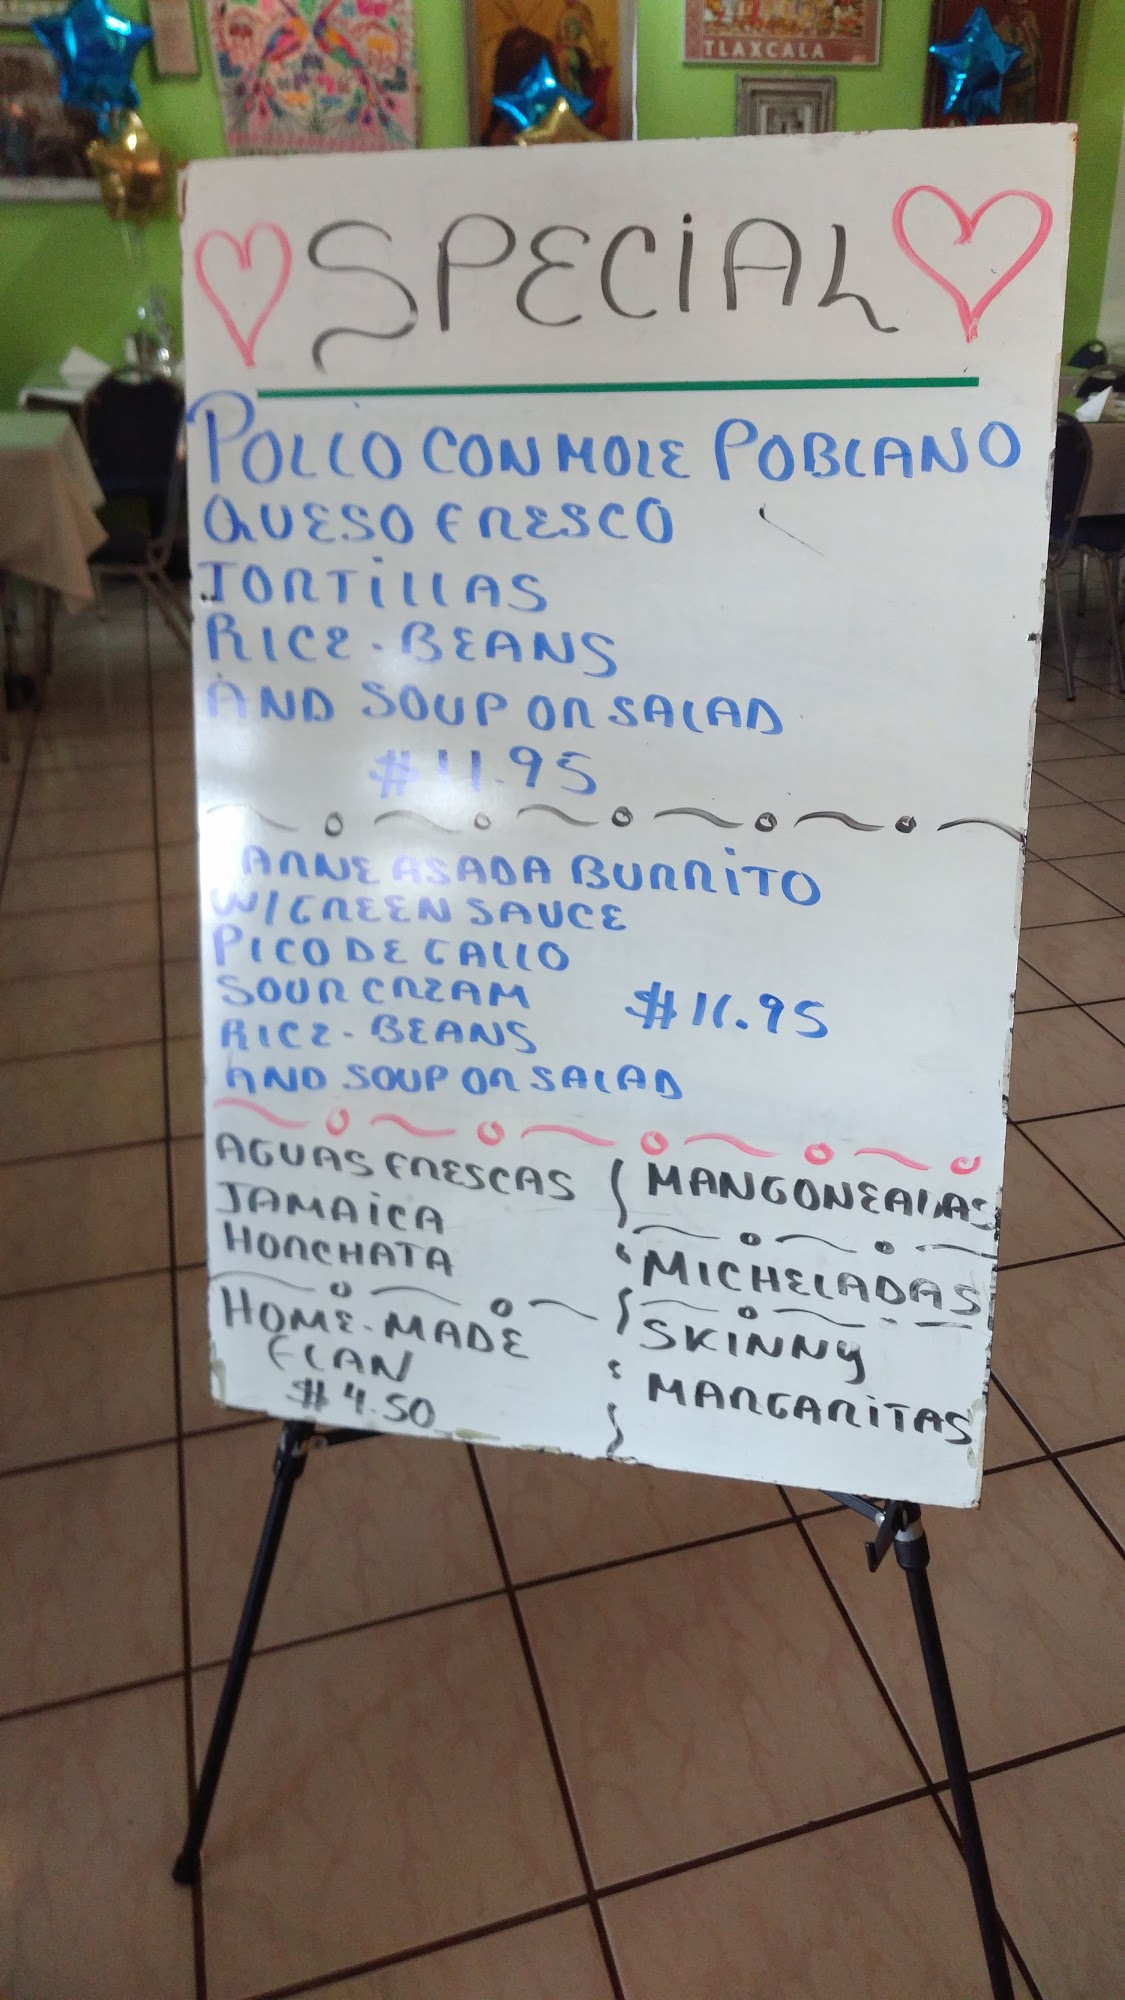 TLAXCALA
SPECIAL
POLLO CON MOLE POBLANO
QUESO FRESCO
TORTILLAS
RICE - BEANS
AND SOUP OR SALAD
$11.95
ARNE ASADA BURRITO
W/ GREEN SAUCE
PICO DE GALLO
SOUR CREAM
$11.95
RICE - BEANS
AND SOUP OR SALAD
AGUAS FRESCAS
JAMAICA
HORCHATA
HOME-MADE
FLAN
$4.50
MANGONEADAS
MICHELADAS
SKINNY
MARGARITAS